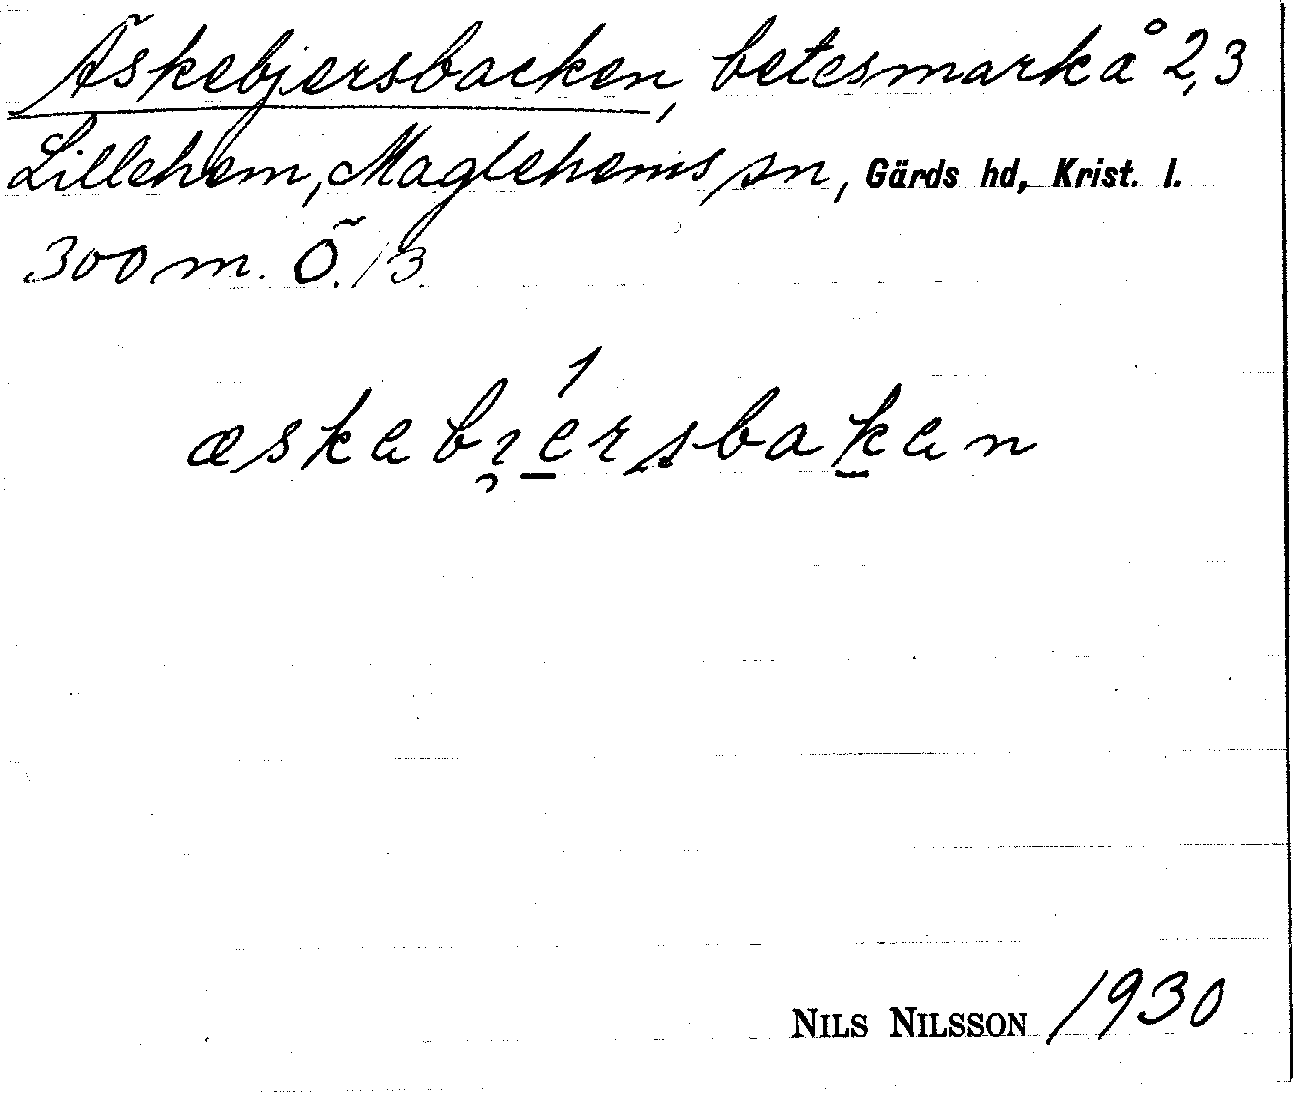 Äskebjersbacken, betesmark å 2,3
Lillehem, Maglehems sn, Gärds hd, Krist. l.
300 m. Ö. /3.
æskabi̯érsbakan
NILS NILSSON 1930